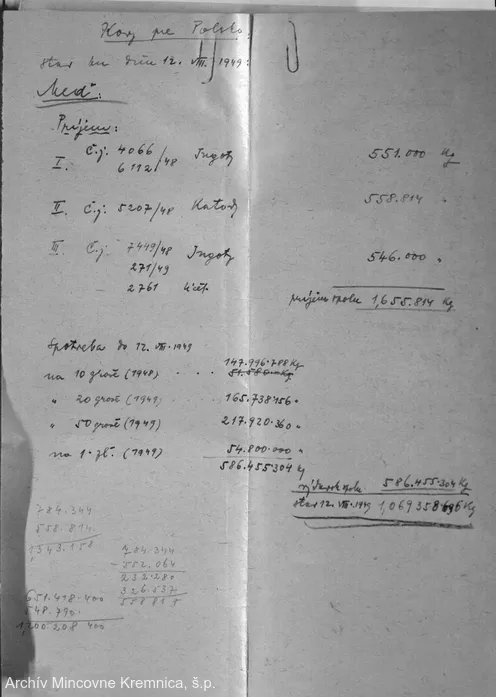 Kovy pre Polsko
stav ku dňu 12. VIII. 1949:
Meď:
Príjem:
I. Č.j. 4066
6112/48 Ingoty 551.000 Kg
II. Č.j. 5207/48 Katody 558.814 "
III. Č.j. 7449/48 Ingoty 546.000 "
271/49
2761 účet.
príjem spolu 1,655.814 Kg
Spotreba do 12. VIII. 1949
147.996.788 Kg
na 10 groší (1948) . . . 51.580 Kg
" 20 groší (1949) 165.738.156 "
" 50 groší (1949) 217.920.360 "
na 1.- zł. (1949) 54.800.000 "
586.455.304 Kg
výdavok spolu 586.455.304 Kg
stav 12. VIII. 1949 1,069.358.696 Kg
784.344
558.814.
1,343.158
784.344
- 552.064
232.280
326.537
558.817
651.418.400
548.790.
1,200.208.400
Archív Mincovne Kremnica, š.p.